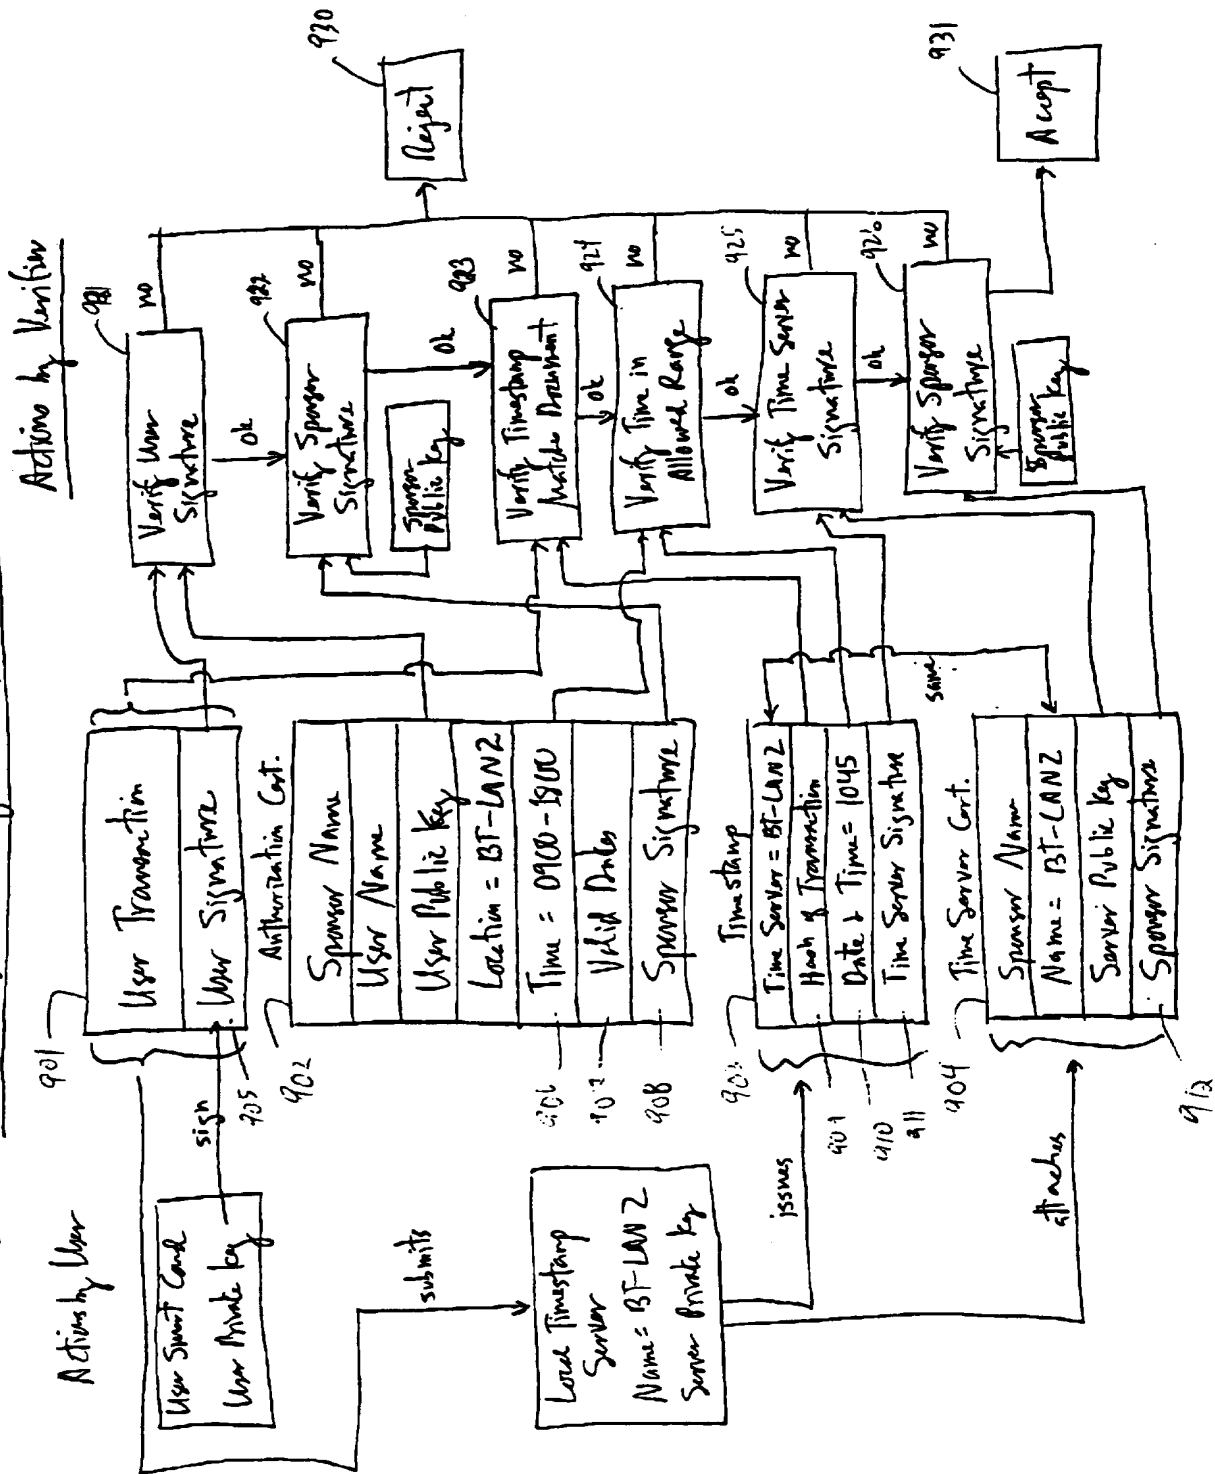 Actions by User
User Smart Card
User Private Key
sign
submits
Local Timestamp
Server
Name = BT-LAN2
Server Private Key
issues
attaches
901
User Transaction
User Signature
902
Authorization Cert.
Sponsor Name
User Name
User Public Key
Location = BT-LAN2
Time = 0900-1800
Valid Dates
Sponsor Signature
908
Timestamp
Time Server = BT-LAN2
Hash of Transaction
Date & Time = 1045
Time Server Signature
910
911
904
Time Server Cert.
Sponsor Name
Name = BT-LAN2
Server Public Key
Sponsor Signature
912
same
Actions by Verifier
Verify User
Signature
no
ok
922
Verify Sponsor
Signature
no
Sponsor
Public Key
ok
923
Verify Timestamp
Matches Document
no
ok
924
Verify Time in
Allowed Range
no
ok
925
Verify Time Server
Signature
no
ok
926
Verify Sponsor
Signature
no
Sponsor
Public Key
930
Reject
931
Accept